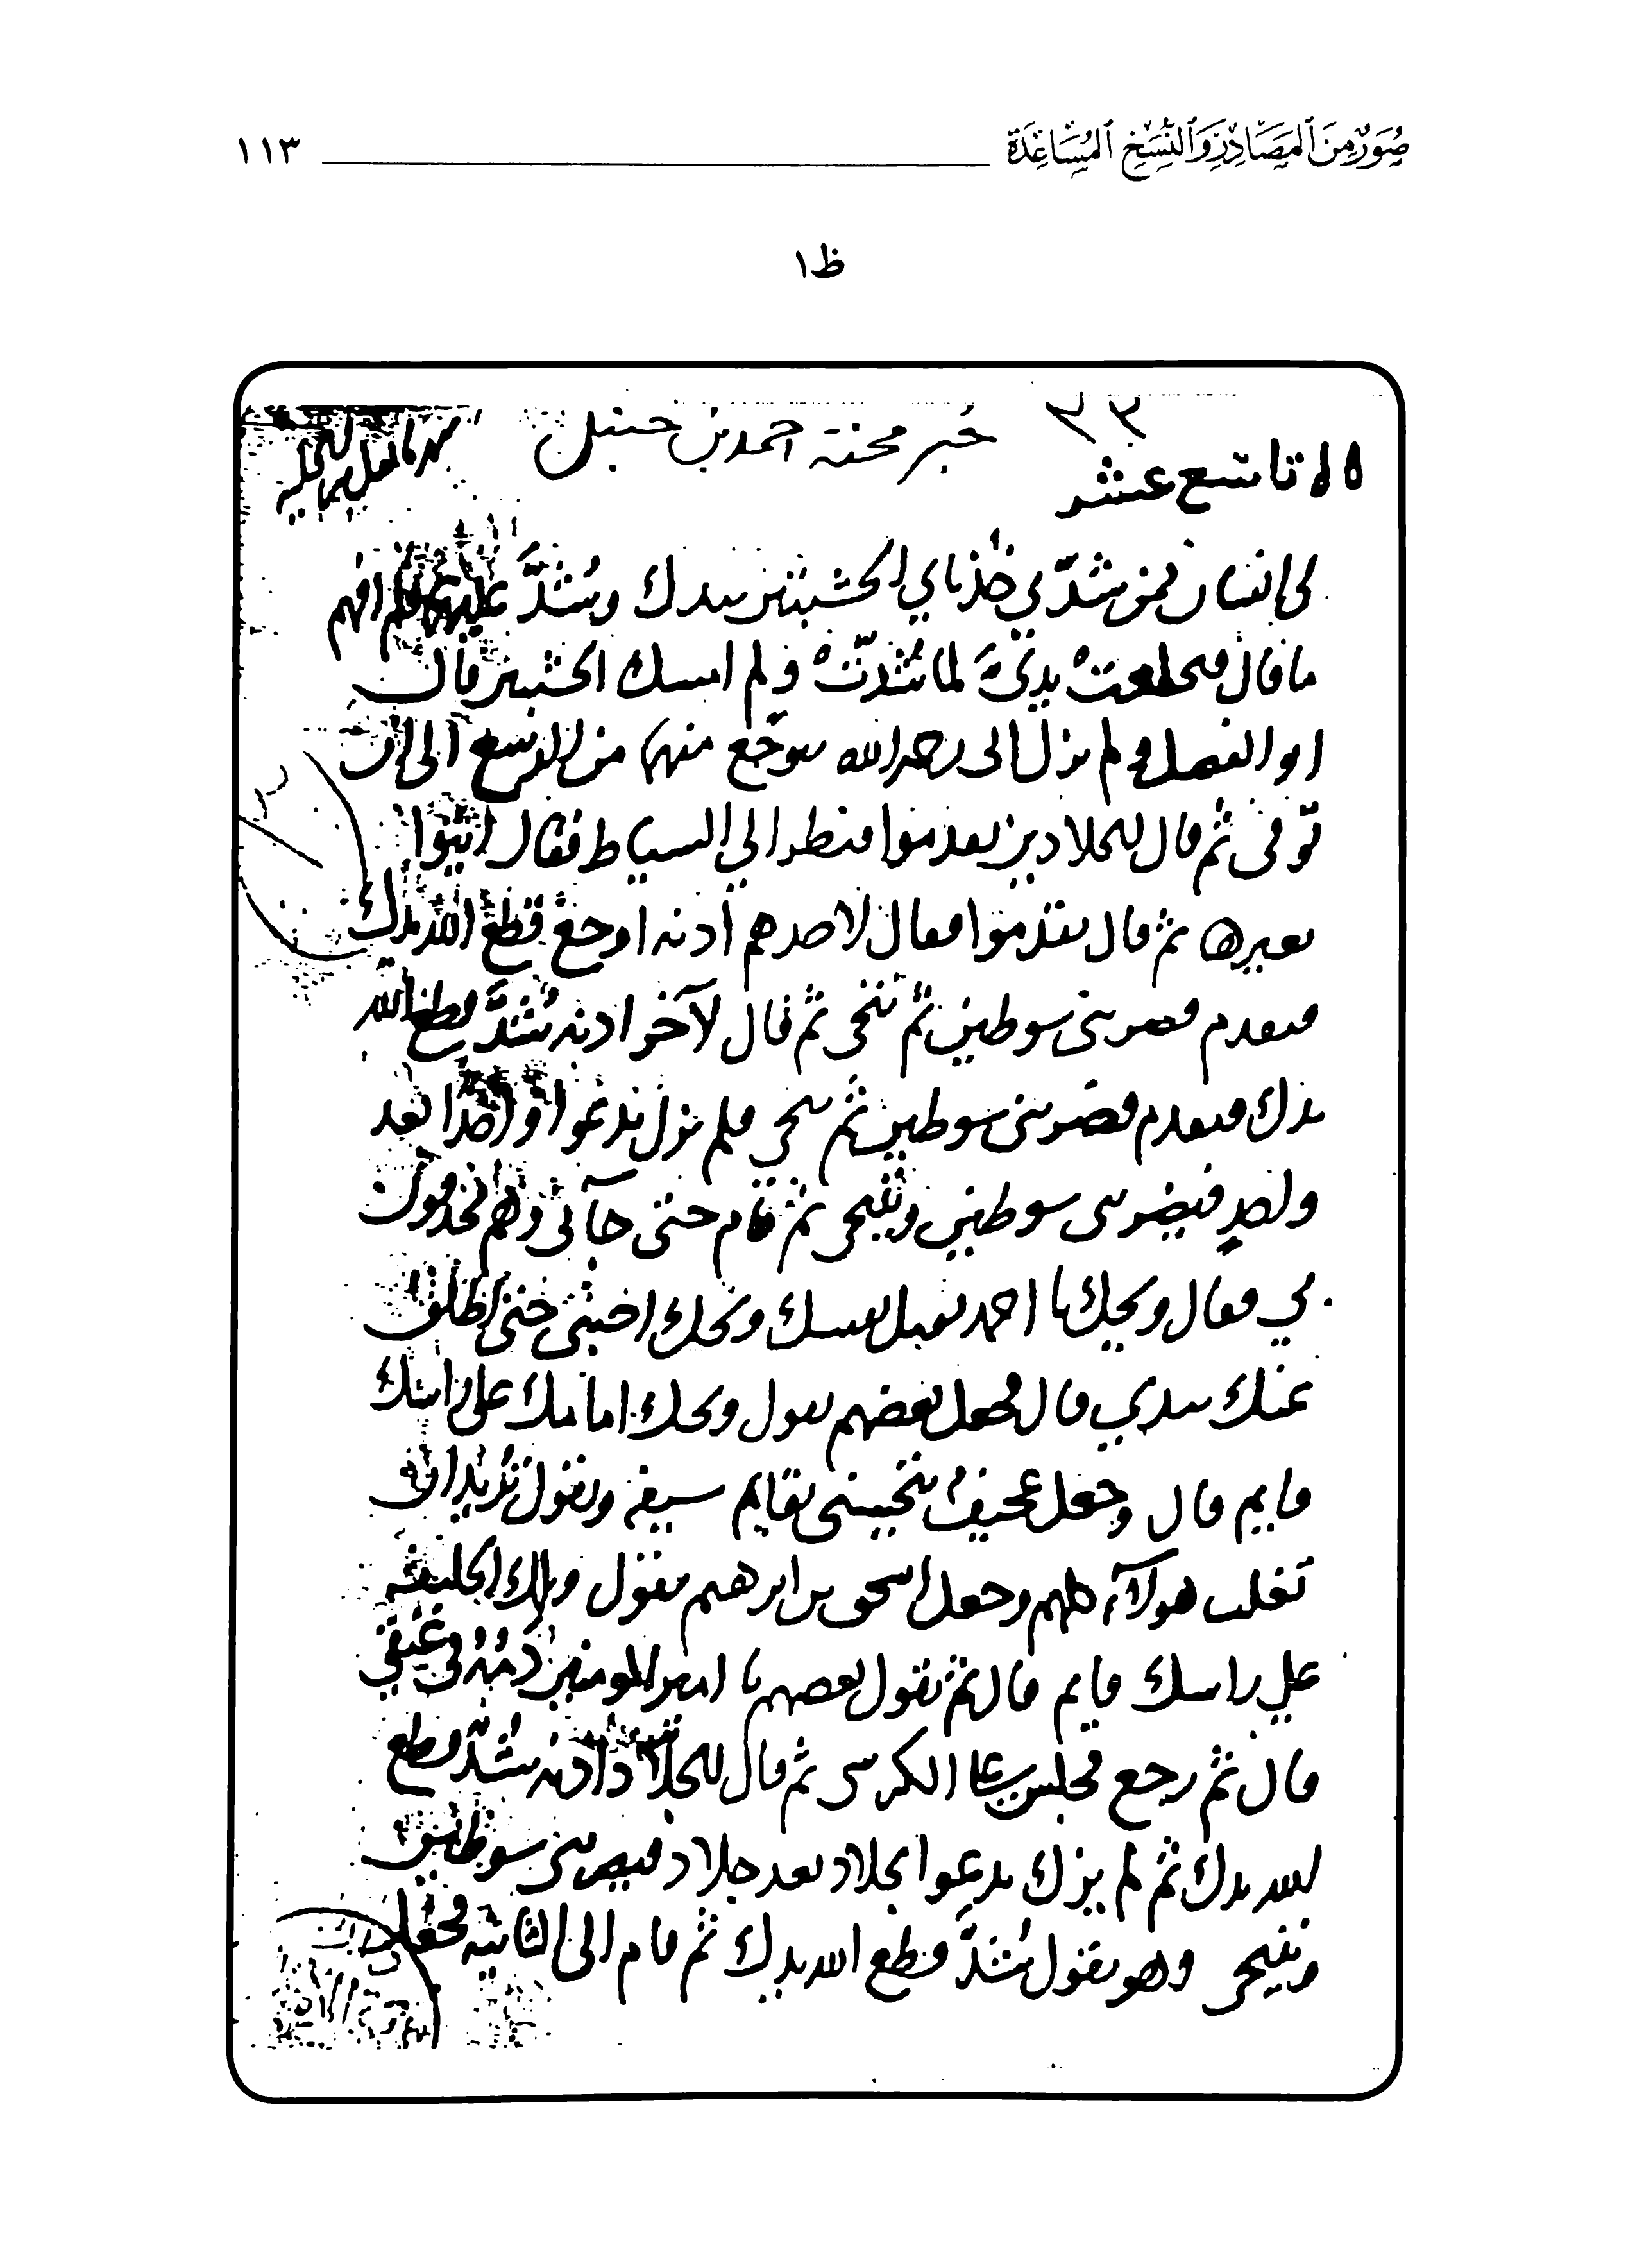 صُوَرٌ مِنَ ٱلمَصَادِرِ وَٱلنُّسَخِ ٱلمُسَاعِدَةِ ١١٣
ظ١
٣٣
خبر محنة احمد بن حنبل
تاسع عشر
لي انسان ممن شدّني خذ ناي الخشبتين بيدك وشُدَّ عليهما فلم افهم
ما قال فتخلعت يديَّ لما شُدِدتُ ولم امسك الخشبتين قال
ابو الفضل ولم يزل ابي رحمه الله يتوجع منهما من الرسغ الى ان
توفى ثم قال للجلادين تقدموا فنظر الي السياط فقال ائتوا
بغيرها ثم قال تقدموا فقال لاحدهم ادنه اوجع قطع الله يدك
فتقدم فضربني سوطين ثم تنحى ثم قال لآخر ادنه شُدَّ قطع الله
يدك فتقدم فضربني سوطين ثم تنحى فلم يزل يدعو واحدا بعد
واحدٍ فيضربني سوطين ويتنحى ثم قام حتى جآني وهم محدقون
بي فقال ويحك يا احمد تقتل نفسك ويحك اجبني حتى اطلق
عنك بيدي قال فجعل بعضهم يقول ويحك امامك على راسك
قايم قال وجعل عجيفٌ ينخسني بقايم سيفه ويقول تريد ان
تغلب هولآء كلهم وجعل اسحق بن ابرهيم يقول ويلك الخليفة
على راسك قايم قال ثم يقول بعضهم يا امير المومنين دمُهُ في عنقي
قال ثم رجع فجلس على الكرسى ثم قال للجلاد ادنه شُدَّ قطع
الله يدك ثم لم يزل يدعو بجلاد بعد جلاد فيضربني سوطين
ويتنحى وهو يقول شُدَّ قطع الله يدك ثم قام الى الثانية فجعل